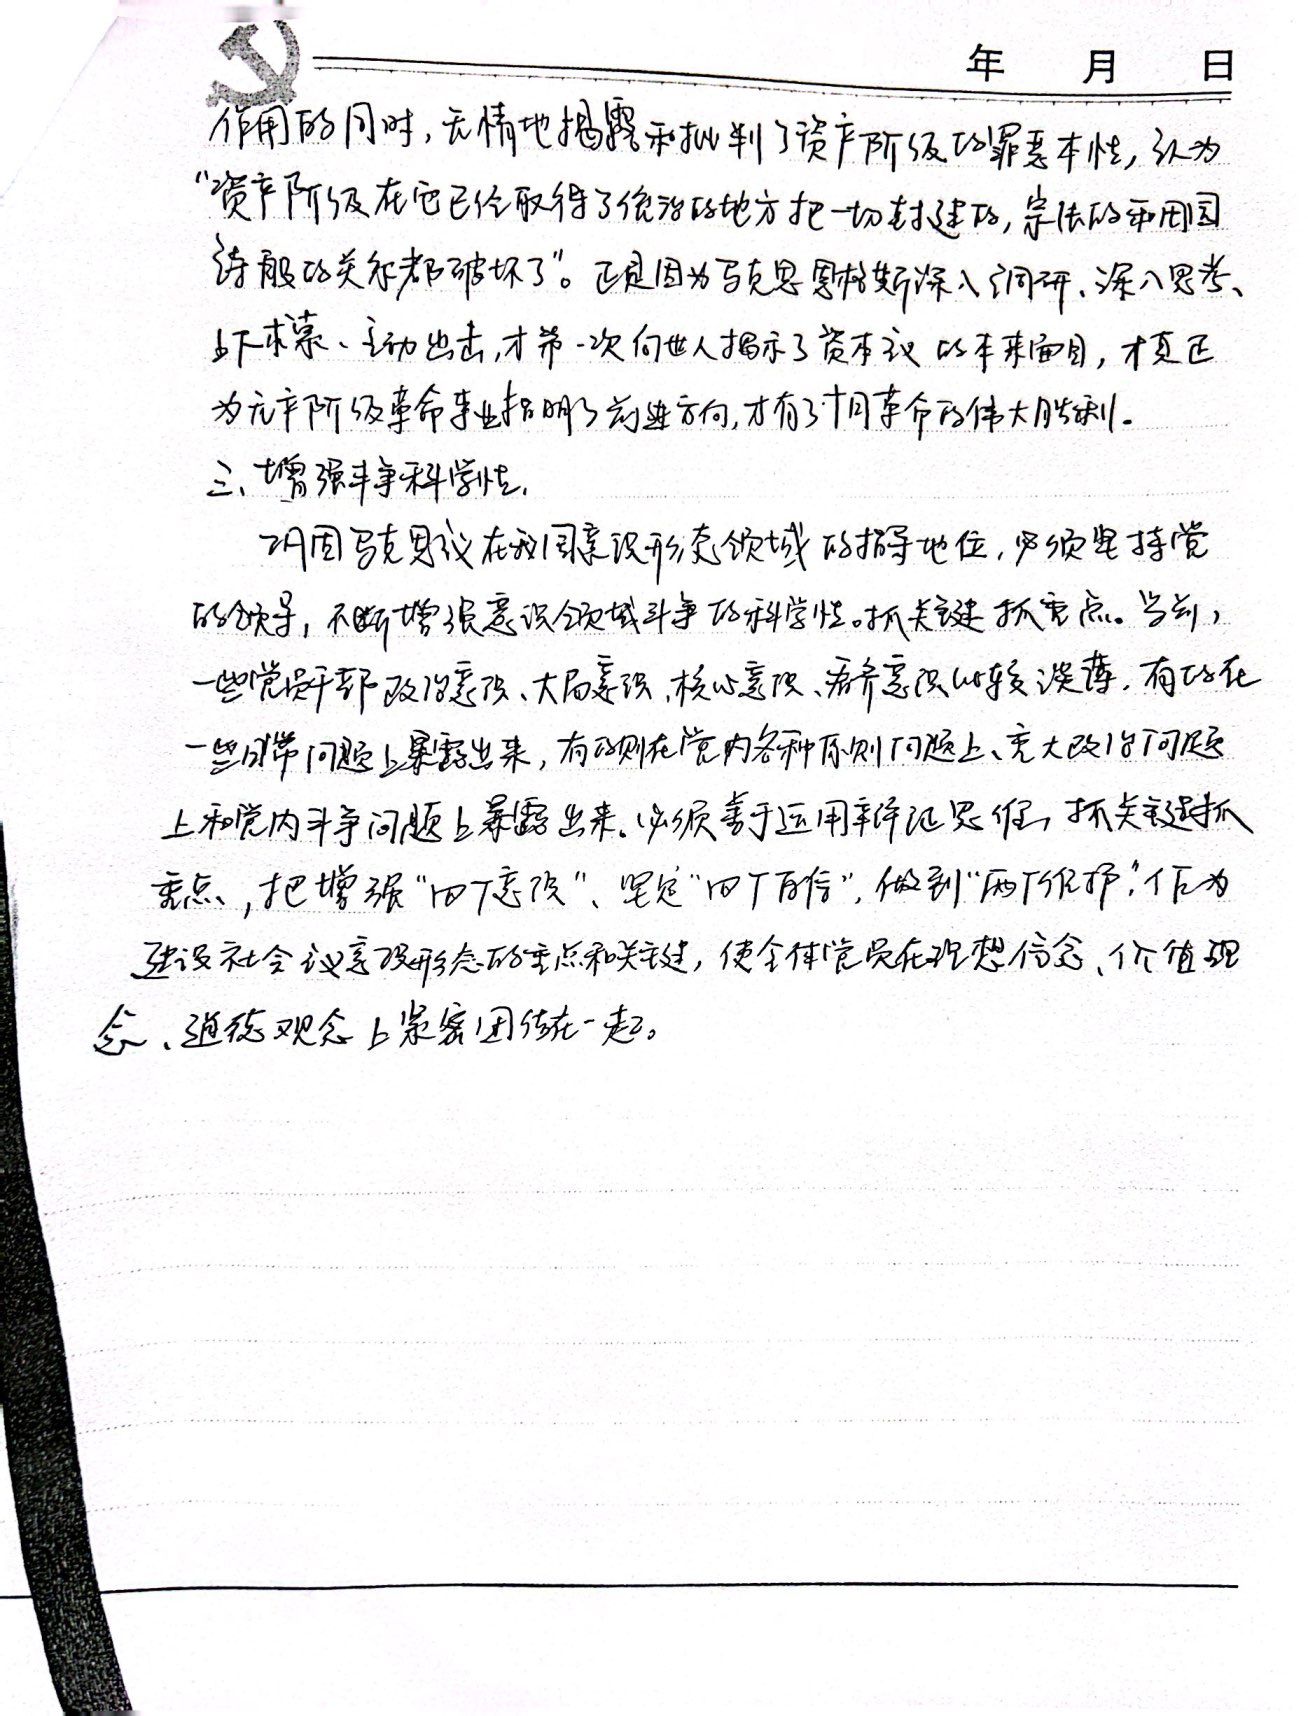 年 月 日
作用的同时,无情地揭露和批判了资产阶级的罪恶本性,认为
“资产阶级在它已经取得了统治的地方把一切封建的,宗法的和田园
诗般的关系都破坏了”。正是因为马克思恩格斯深入调研、深入思考、
主动出击,才第一次向世人揭示了资本议的本来面目,才真正
为无产阶级革命事业指明了前进方向,才有了十月革命的伟大胜利。
三、增强斗争科学性.
巩固马克思议在我国意识形态领域的指导地位,必须坚持党
的领导,不断增强意识领域斗争的科学性。抓关键抓重点。当前,
一些党员干部政治意识、大局意识、核心意识、看齐意识比较淡薄,有的在
一些日常问题上暴露出来,有的则在党内各种原则问题上、重大政治问题
上和党内斗争问题上暴露出来。必须善于运用辩证思维,抓关键抓
重点、,把增强“四个意识”、坚定“四个自信”,做到“两个维护”,作为
建设社会议意识形态的重点和关键,使全体党员在理想信念、价值理
念、道德观念上紧密团结在一起。